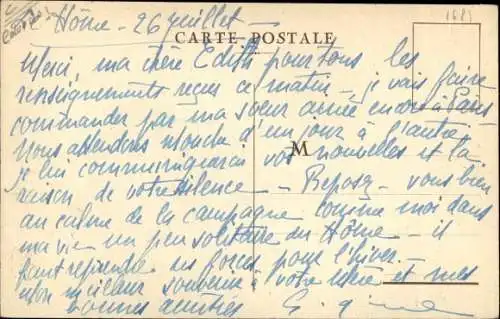 Hôme - 26 juillet -
CARTE POSTALE
1685
Merci, ma chère Edith pour tous les
renseignements reçus ce matin - je vais faire
commander par ma soeur ainée encore à Paris
Nous attendons Blanche d'un jour à l'autre
je lui communiquerai vos nouvelles et la
M
raison de votre silence - Reposez - vous bien
au calme de la campagne comme moi dans
ma vie un peu solitaire du Hôme - il
faut reprendre des forces pour l'hiver. -
Mon meilleur souvenir à votre mère et mes
bonnes amitiés